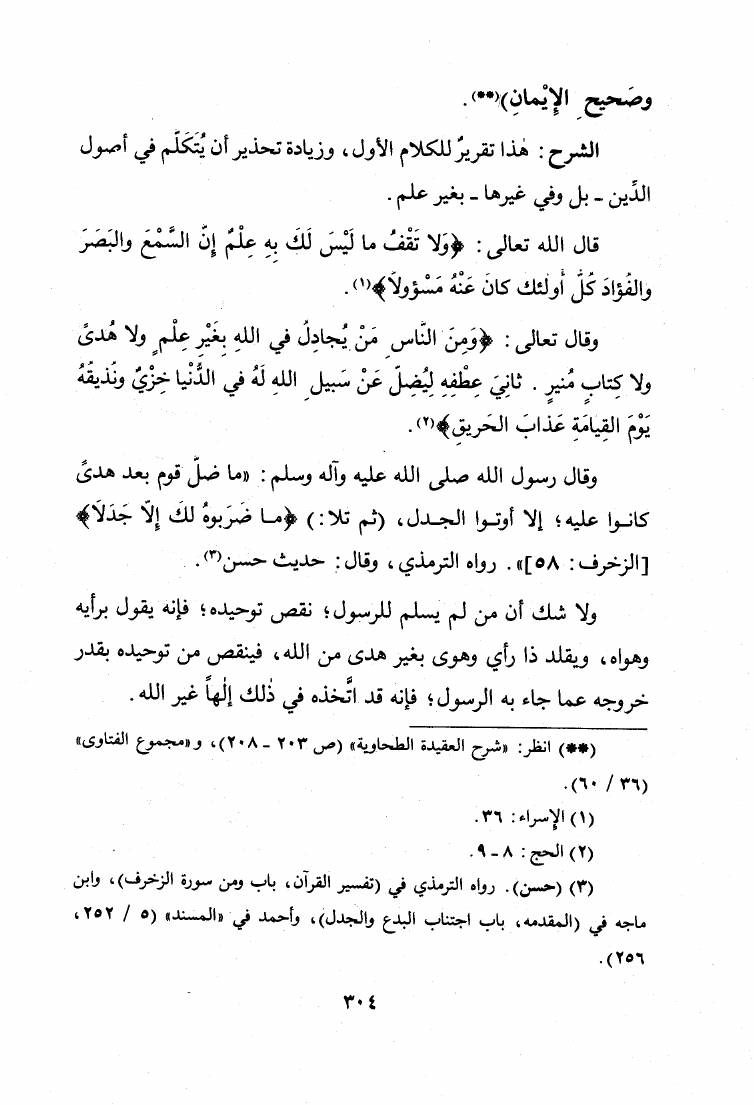 وصَحيحِ الإِيْمانِ)(**).
الشرح: هٰذا تقريرٌ للكلام الأول، وزيادة تحذير أن يُتَكَلَّم في أصول
الدِّين - بل وفي غيرها - بغير علم.
قال الله تعالى: ﴿وَلا تَقْفُ ما لَيْسَ لَكَ بِهِ عِلْمٌ إِنَّ السَّمْعَ والبَصَرَ
والفُؤادَ كُلُّ أُولٰئك كانَ عَنْهُ مَسْؤولاً﴾(١).
وقال تعالى: ﴿وَمِنَ النَّاسِ مَنْ يُجادِلُ في اللهِ بِغَيْرِ عِلْمٍ ولا هُدىً
ولا كِتابٍ مُنيرٍ . ثانِيَ عِطْفِهِ لِيُضِلَّ عَنْ سَبيلِ اللهِ لَهُ في الدُّنْيا خِزْيٌ ونُذيقُهُ
يَوْمَ القِيامَةِ عَذابَ الحَريقِ﴾(٢).
وقال رسول الله صلى الله عليه وآله وسلم: «ما ضلَّ قوم بعد هدىً
كانوا عليه؛ إلا أوتوا الجدل، (ثم تلا:) ﴿ما ضَرَبوهُ لكَ إِلَّا جَدَلاً﴾
[الزخرف: ٥٨]». رواه الترمذي، وقال: حديث حسن(٣).
ولا شك أن من لم يسلم للرسول؛ نقص توحيده؛ فإنه يقول برأيه
وهواه، ويقلد ذا رأي وهوى بغير هدى من الله، فينقص من توحيده بقدر
خروجه عما جاء به الرسول؛ فإنه قد اتَّخذه في ذٰلك إِلٰهاً غير الله.
(**) انظر: «شرح العقيدة الطحاوية» (ص ٢٠٣ - ٢٠٨)، و«مجموع الفتاوى»
(٣٦ / ٦٠).
(١) الإسراء: ٣٦.
(٢) الحج: ٨ - ٩.
(٣) (حسن). رواه الترمذي في (تفسير القرآن، باب ومن سورة الزخرف)، وابن
ماجه في (المقدمه، باب اجتناب البدع والجدل)، وأحمد في «المسند» (٥ / ٢٥٢،
٢٥٦).
٣٠٤